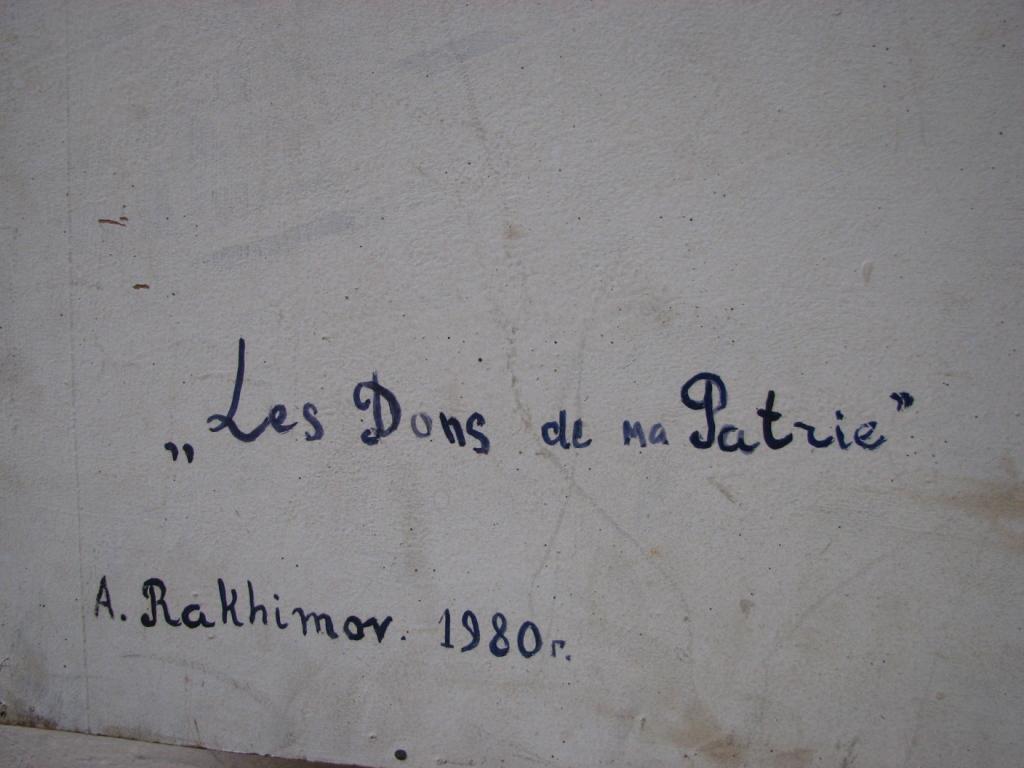 „Les Dons de ma Patrie”
A. Rakhimov. 1980г.